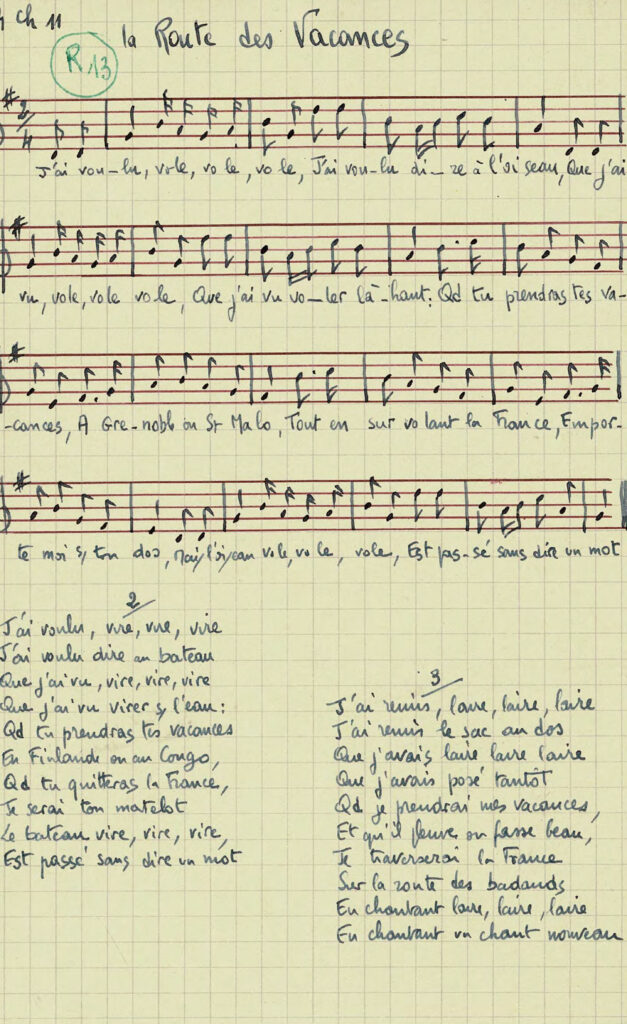 ch 11
la Route des Vacances
R13
2/4
J'ai vou-lu, vole, vole, vole, J'ai vou-lu di-re à l'oiseau, Que j'ai
vu, vole, vole vole, Que j'ai vu vo-ler là-haut: Qd tu prendras tes va-
-cances, A Gre-noble ou St Malo, Tout en sur volant la France, Empor-
te moi s/ ton dos, Mais l'oiseau vole, vole, vole, Est pas-sé sans dire un mot
2
J'ai voulu, vire, vire, vire
J'ai voulu dire au bateau
Que j'ai vu, vire, vire, vire
Que j'ai vu virer s/ l'eau:
Qd tu prendras tes vacances
En Finlande ou au Congo,
Qd tu quitteras la France,
Je serai ton matelot
Le bateau vire, vire, vire,
Est passé sans dire un mot
3
J'ai remis, laire, laire, laire
J'ai remis le sac au dos
Que j'avais laire laire laire
Que j'avais posé tantôt
Qd je prendrai mes vacances,
Et qu'il pleuve ou fasse beau,
Je traverserai la France
Sur la route des badauds
En chantant laire, laire, laire
En chantant un chant nouveau